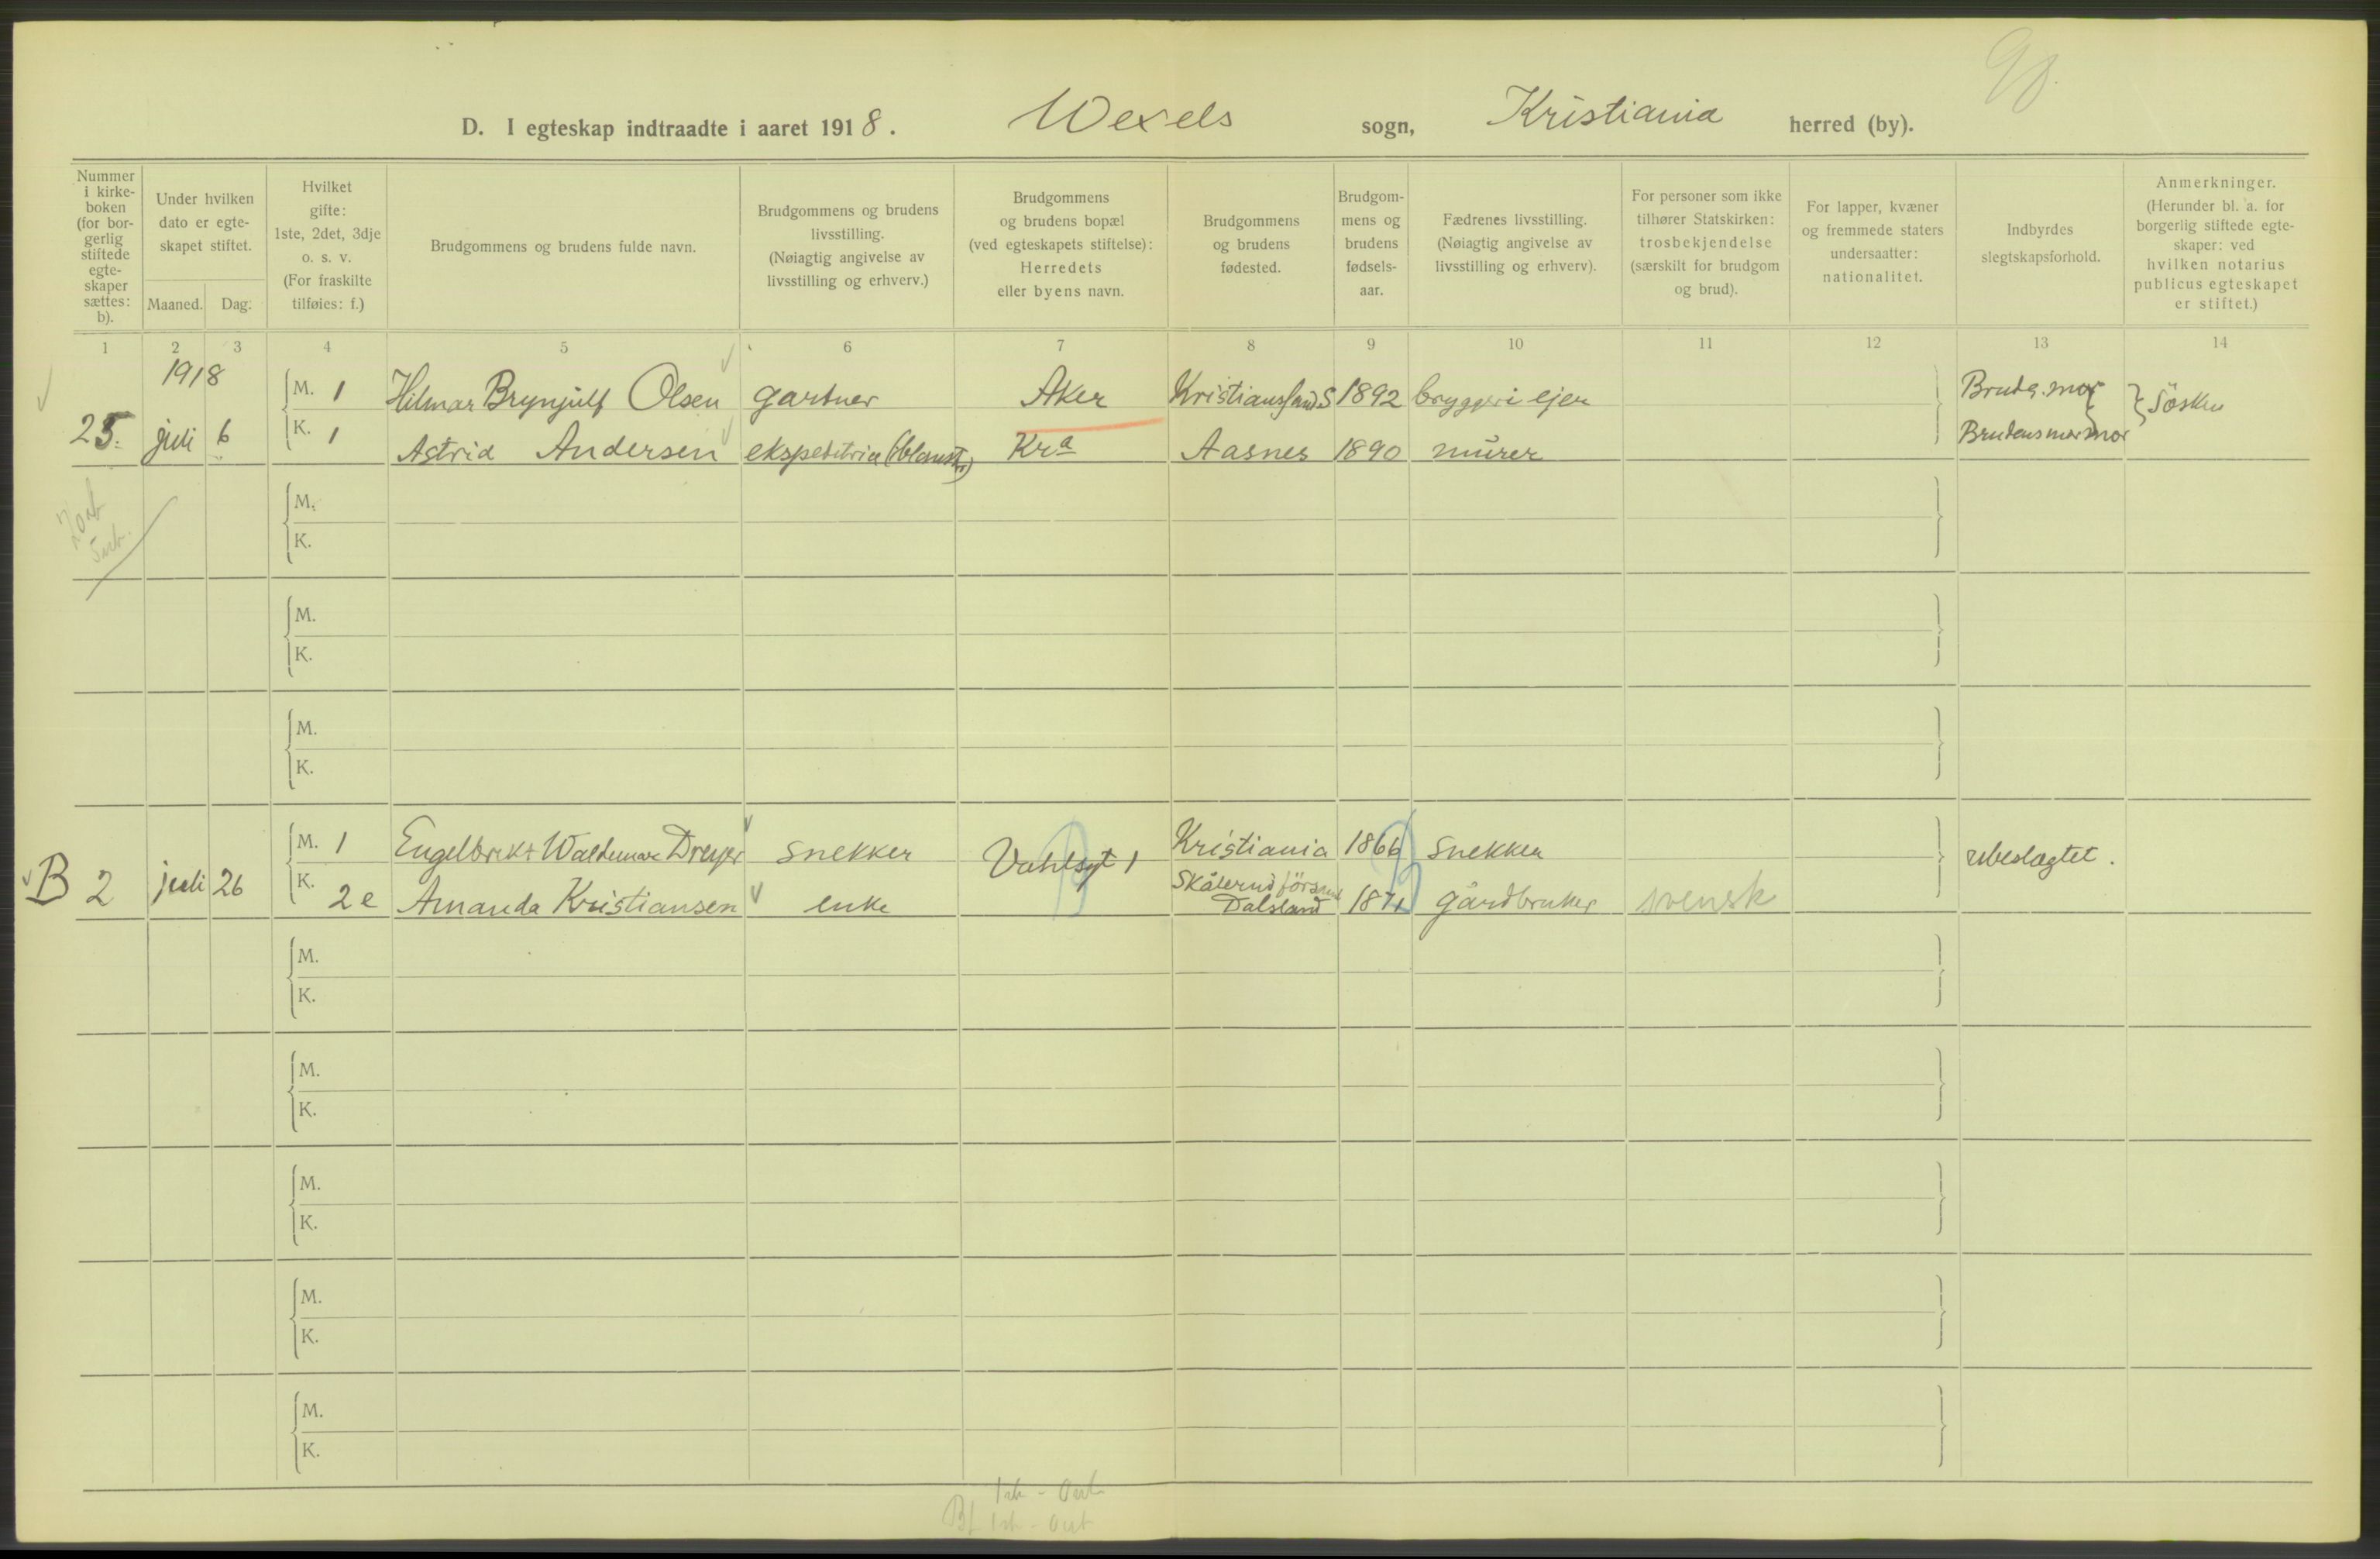 D. I egteskap indtraadte i aaret 1918. Wexels sogn, Kristiania herred (by).
Nummer i kirke- boken (for bor- gerlig stiftede egte- skaper sættes: b).
Under hvilken dato er egte- skapet stiftet.
Maaned. Dag.
Hvilket gifte: 1ste, 2det, 3dje o. s. v. (For fraskilte tilføies: f.)
Brudgommens og brudens fulde navn.
Brudgommens og brudens livsstilling. (Nøiagtig angivelse av livsstilling og erhverv.)
Brudgommens og brudens bopæl (ved egteskapets stiftelse): Herredets eller byens navn.
Brudgommens og brudens fødested.
Brudgom- mens og brudens fødsels- aar.
Fædrenes livsstilling. (Nøiagtig angivelse av livsstilling og erhverv).
For personer som ikke tilhører Statskirken: trosbekjendelse (særskilt for brudgom og brud).
For lapper, kvæner og fremmede staters undersaatter: nationalitet.
Indbyrdes slegtskapsforhold.
Anmerkninger. (Herunder bl. a. for borgerlig stiftede egte- skaper: ved hvilken notarius publicus egteskapet er stiftet.)
1 2 3 4 5 6 7 8 9 10 11 12 13 14
1918
M. 1 Hilmar Brynjulf Olsen gartner Aker Kristiansand S 1892 bryggeri ejer Brudg. mor
25. juli 6 K. 1 Astrid Andersen Kra Aasnes 1890 murer Brudens mormor } Søsken
M.
K.
M.
K.
M.
K.
M. 1 Engelbrekt Waldemar Dreyer snekker Vahlsgt 1 Kristiania 1866 snekker ubeslægtet.
B 2 juli 26 K. 2e Amanda Kristiansen enke Dalsland 1871 gårdbruker svensk
M.
K.
M.
K.
M.
K.
M.
K.
M.
K.